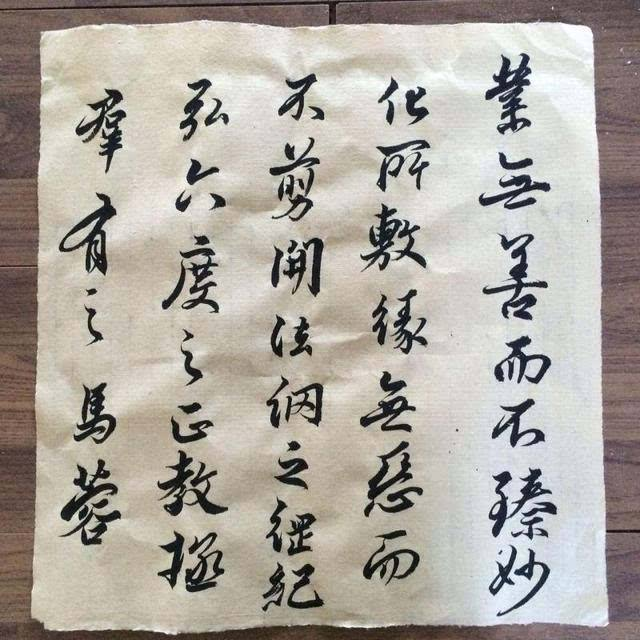 業無善而不臻妙
化所敷緣無惡而
不剪開法網之綱紀
弘六度之正教拯
羣有之 馬蓉